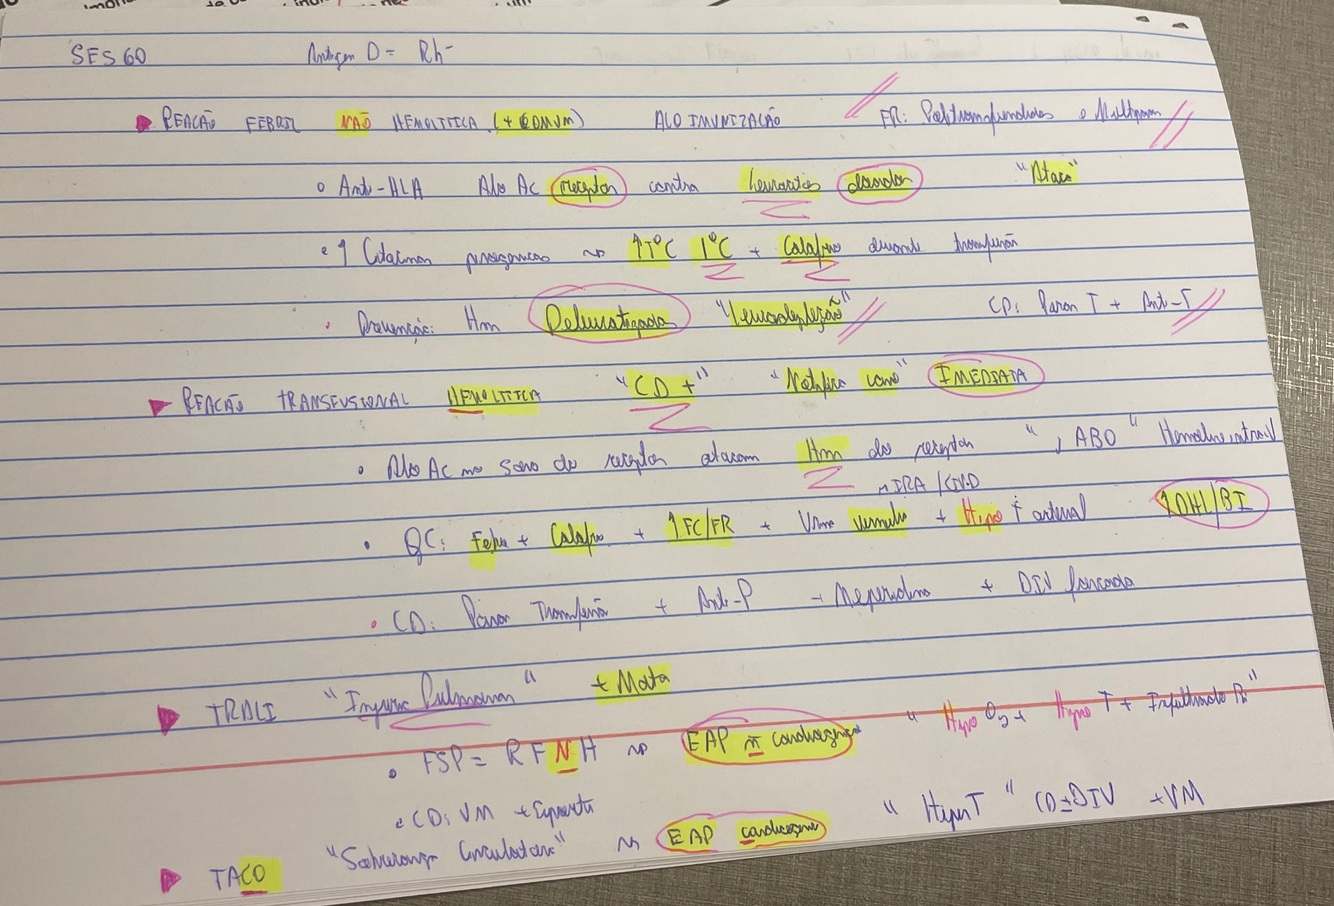 SES 60 Antígen D = Rh-
REAÇÃO FEBRIL NÃO HEMOLITICA (+ COMUM) ALOIMUNIZAÇÃO FR: Politransfundidos e Multíparas
Anti-HLA Alo Ac receptor contra leucócitos doador "Ataca"
↑ Citocinas pirogenicas ↑T°C 1°C + Calafrio durante transfusão
Prevenção: Hm Deleucotizadas "Leucodepleção" CD: Parar T + Anti-T
REAÇÃO TRANSFUSIONAL HEMOLITICA "CD +" "Notifica como" IMEDIATA
Alo Ac no soro do receptor atacam Hm do receptor ", ABO" Hemolise intraV
IRA / CIVD
QC: Febre + Calafrio + ↑FC/FR + Urina vermelha + Hipo T arterial ↑DHL/BI
CD: Parar Transfusão + Anti-P Meperidina + DIV forcada
TRALI "Injuria Pulmonar" + Mata
FSP = RFNH EAP ñ cardiogenico "Hipo O2 + Hipo T + Infiltrado P"
CD: VM + Suporte
TACO "Sobrecarga Circulatoria" EAP cardiogenico "HiperT" CD: DIV + VM